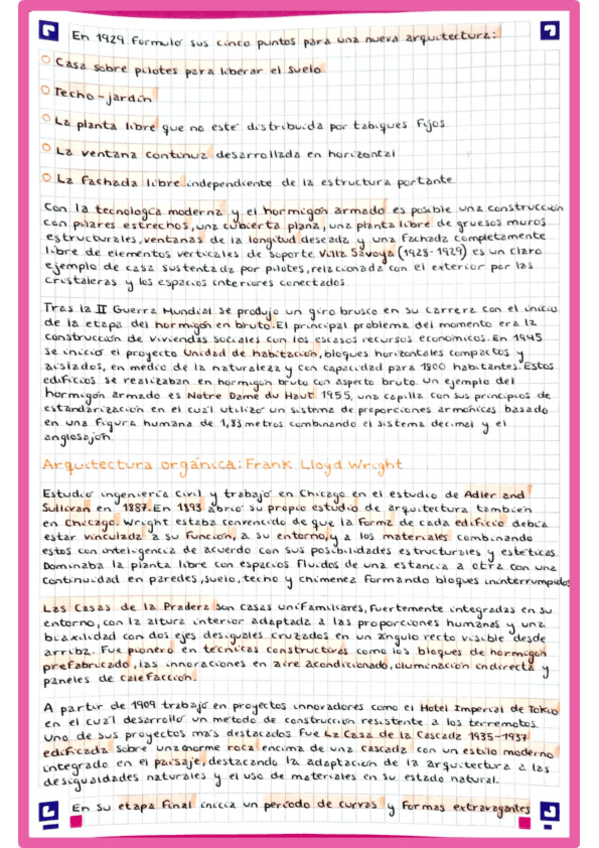 En 1929 formuló sus cinco puntos para una nueva arquitectura:
Casa sobre pilotes para liberar el suelo
Techo-jardín
La planta libre que no esté distribuida por tabiques fijos
La ventana continua desarrollada en horizontal
La fachada libre independiente de la estructura portante.
Con la tecnología moderna y el hormigón armado es posible una construcción
con pilares estrechos, una cubierta plana, una planta libre de gruesos muros
estructurales, ventanas de la longitud deseada y una fachada completamente
libre de elementos verticales de soporte Villa Savoya (1928-1929) es un claro
ejemplo de casa sustentada por pilotes, relacionada con el exterior por las
cristaleras y los espacios interiores conectados.
Tras la II Guerra Mundial se produjo un giro brusco en su carrera con el inicio
de la etapa del hormigón en bruto. El principal problema del momento era la
construcción de viviendas sociales con los escasos recursos económicos. En 1945
se inició el proyecto Unidad de habitación, bloques horizontales compactos y
aislados, en medio de la naturaleza y con capacidad para 1800 habitantes. Estos
edificios se realizaban en hormigón bruto con aspecto bruto. Un ejemplo del
hormigón armado es Notre Dame du Haut 1955, una capilla con sus principios de
estandarización en el cual utilizó un sistema de proporciones armónicas basado
en una figura humana de 1,83 metros combinando el sistema decimal y el
anglosajón.
Arquitectura orgánica: Frank Lloyd Wright
Estudió ingeniería civil y trabajó en Chicago en el estudio de Adler and
Sullivan en 1887. En 1893 abrió su propio estudio de arquitectura también
en Chicago. Wright estaba convencido de que la forma de cada edificio debía
estar vinculada a su función, a su entorno, y a los materiales combinando
estos con inteligencia de acuerdo con sus posibilidades estructurales y estéticas.
Dominaba la planta libre con espacios fluidos de una estancia a otra con una
continuidad en paredes, suelo, techo y chimenez formando bloques ininterrumpidos
Las Casas de la Pradera son casas unifamiliares, fuertemente integradas en su
entorno, con la altura interior adaptada a las proporciones humanas y una
biaxilidad con dos ejes desiguales cruzados en un ángulo recto visible desde
arriba. Fue pionero en técnicas constructivas como los bloques de hormigón
prefabricado, las innoraciones en aire acondicionado, iluminación indirecta y
paneles de calefacción.
A partir de 1909 trabajó en proyectos innovadores como el Hotel Imperial de Tokio
en el cual desarrolló un método de construcción resistente a los terremotos.
Uno de sus proyectos más destacados fue La Casa de la Cascada 1935-1937
edificada sobre una enorme roca encima de una cascada con un estilo moderno
integrado en el paisaje, destacando la adaptación de la arquitectura a las
desigualdades naturales y el uso de materiales en su estado natural.
En su etapa final inicia un período de curvas y formas extravagantes